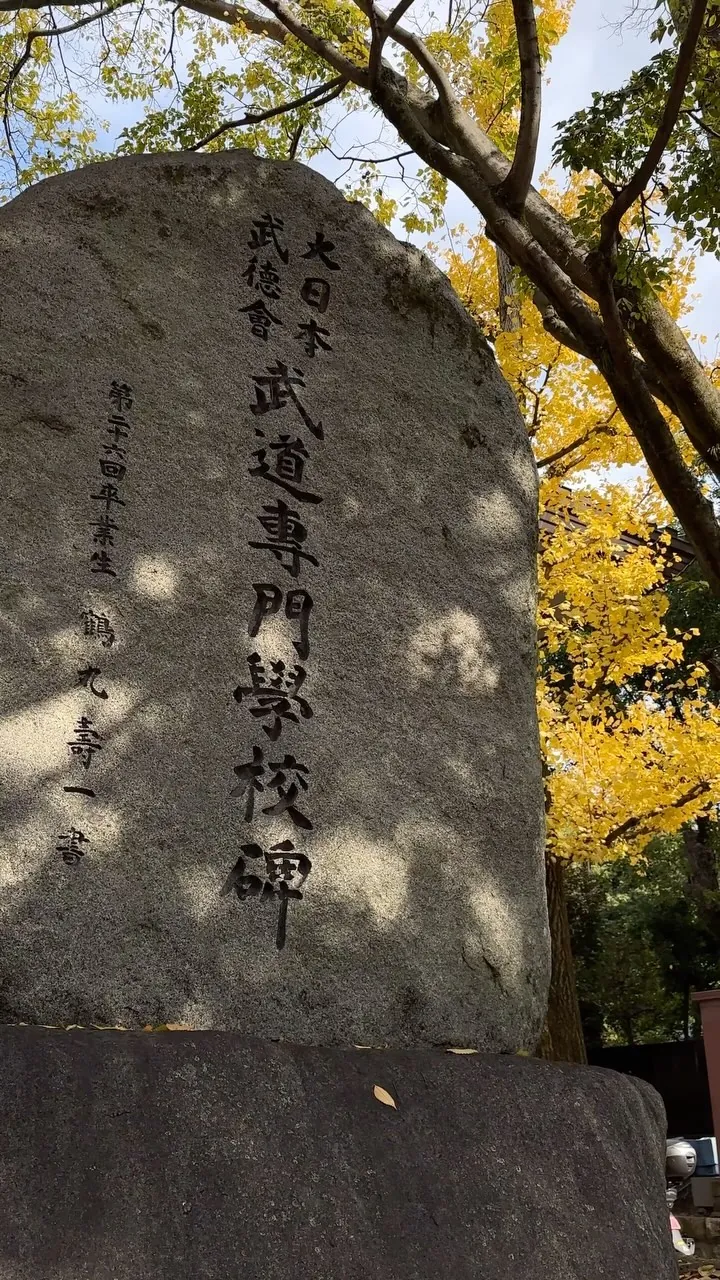 大日本
武徳會
武道專門學校碑
第二十六回卒業生 鶴丸壽一書